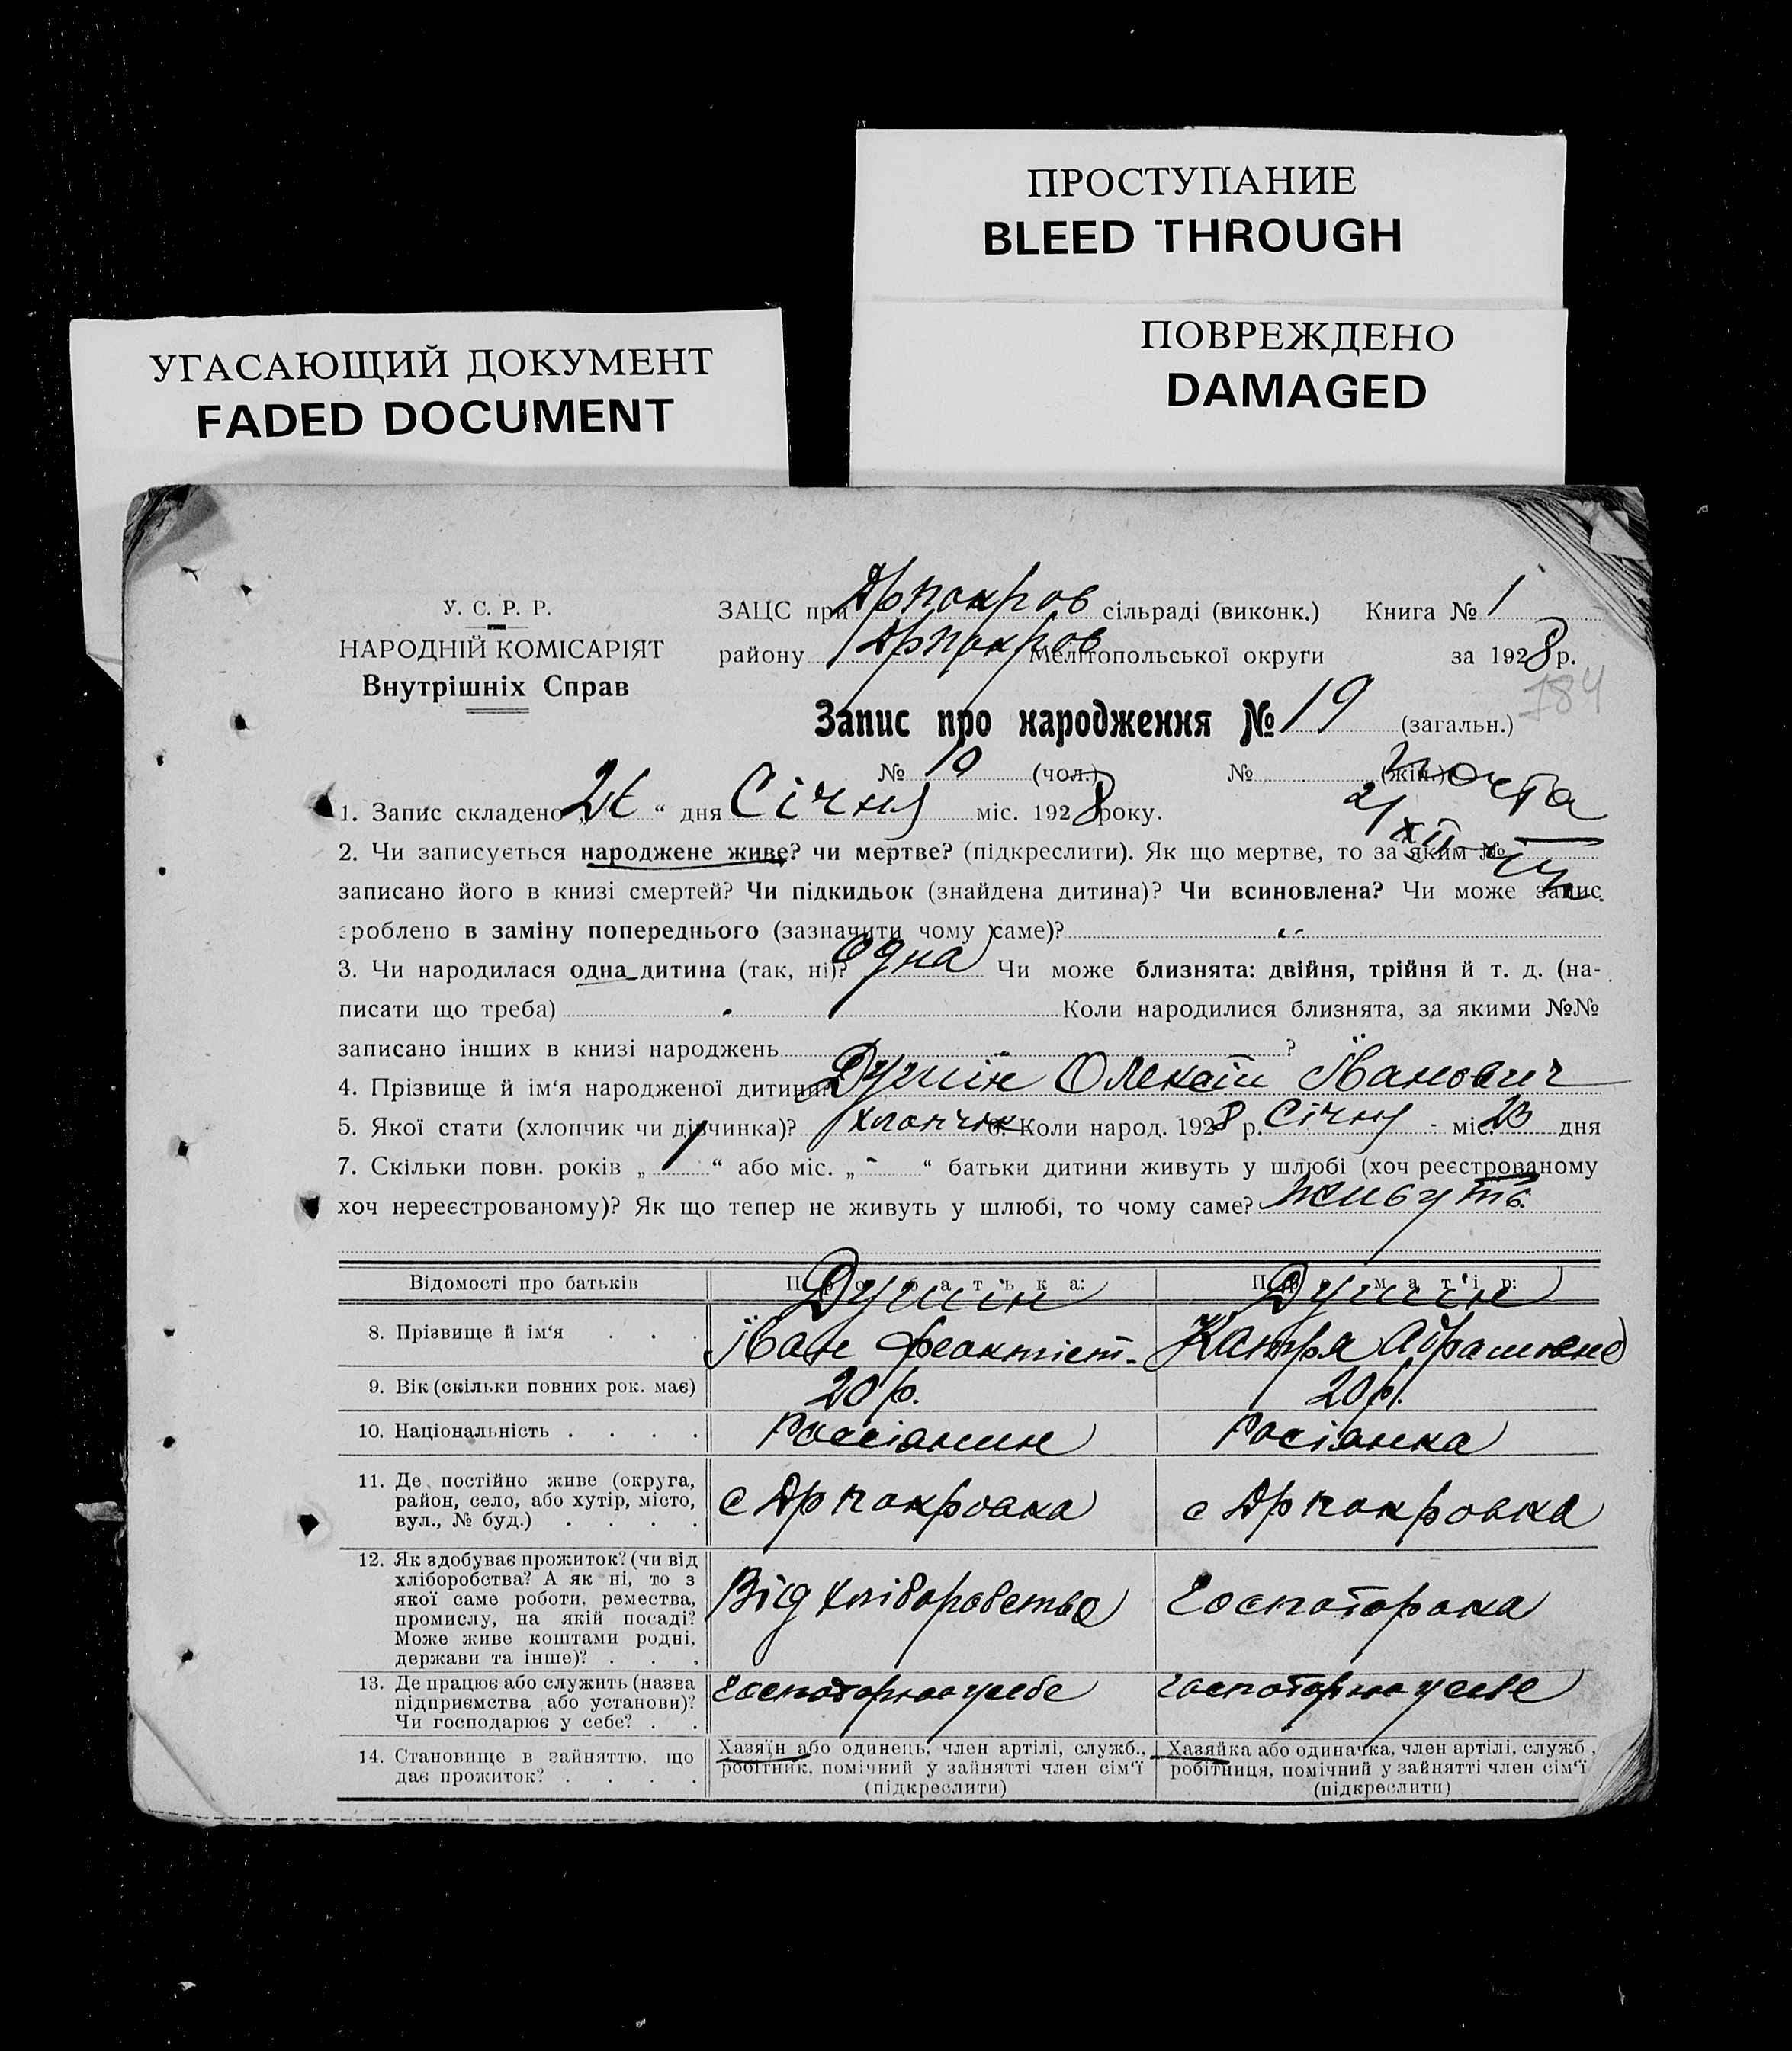 ПРОСТУПАНИЕ
BLEED THROUGH
ПОВРЕЖДЕНО
DAMAGED
УГАСАЮЩИЙ ДОКУМЕНТ
FADED DOCUMENT
У. С. Р. Р.
НАРОДНІЙ КОМІСАРІЯТ
Внутрішніх Справ
ЗАЦС при Арпокров сільраді (виконк.) Книга № 1
району Арпокров Мелітопольської округи за 1928 р.
784
Запис про народження № 19 (загальн.)
№ 10 (чол.) № (жін.)
1. Запис складено „ “ дня Січня міс. 1928 року.
2. Чи записується народжене живе? чи мертве? (підкреслити). Як що мертве, то за яким №
записано його в книзі смертей? Чи підкидьок (знайдена дитина)? Чи всиновлена? Чи може запис
зроблено в заміну попереднього (зазначити чому саме)?
3. Чи народилася одна дитина (так, ні)? одна Чи може близнята: двійня, трійня й т. д. (на-
писати що треба) Коли народилися близнята, за якими №№
записано інших в книзі народжень ?
4. Прізвище й ім‘я народженої дитини? Душін Олексій Іванович
5. Якої стати (хлопчик чи дівчинка)? хлопчик 6. Коли народ. 1928 р. Січня міс. 23 дня
7. Скільки повн. років „ 1 “ або міс. „ - “ батьки дитини живуть у шлюбі (хоч реєстрованому
хоч нереєстрованому)? Як що тепер не живуть у шлюбі, то чому саме? живуть
Відомості про батьків Про батька: Про матір:
Душін Душін
8. Прізвище й ім‘я . . . Іван Феоктіст. Катря Абрамовна
9. Вік (скільки повних рок. має) 20 р. 20 р.
10. Національність . . . . Россіянин Росіянка
11. Де постійно живе (округа,
район, село, або хутір, місто,
вул., № буд.) . . . . с Арпокровка с Арпокровка
12. Як здобуває прожиток? (чи від
хліборобства? А як ні, то з
якої саме роботи, ремества,
промислу, на якій посаді?
Може живе коштами родні,
держави та інше)? . . . Від хліборобства
13. Де працює або служить (назва
підприємства або установи)?
Чи господарює у себе? . .
14. Становище в зайняттю, що
дає прожиток? . . . .
Хазяїн або одинець, член артілі, служб.,
робітник, помічний у зайнятті член сім‘ї
(підкреслити)
Хазяйка або одиначка, член артілі, служб.,
робітниця, помічний у зайнятті член сім‘ї
(підкреслити)